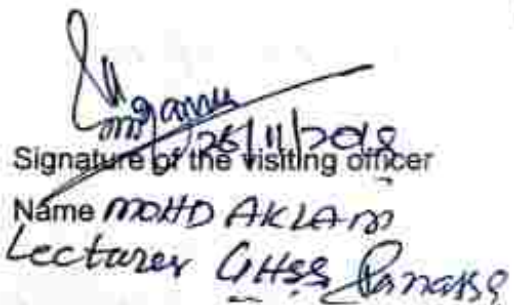 26/11/2018
Signature of the visiting officer
Name MOHD AKLAM
Lecturer GHSS